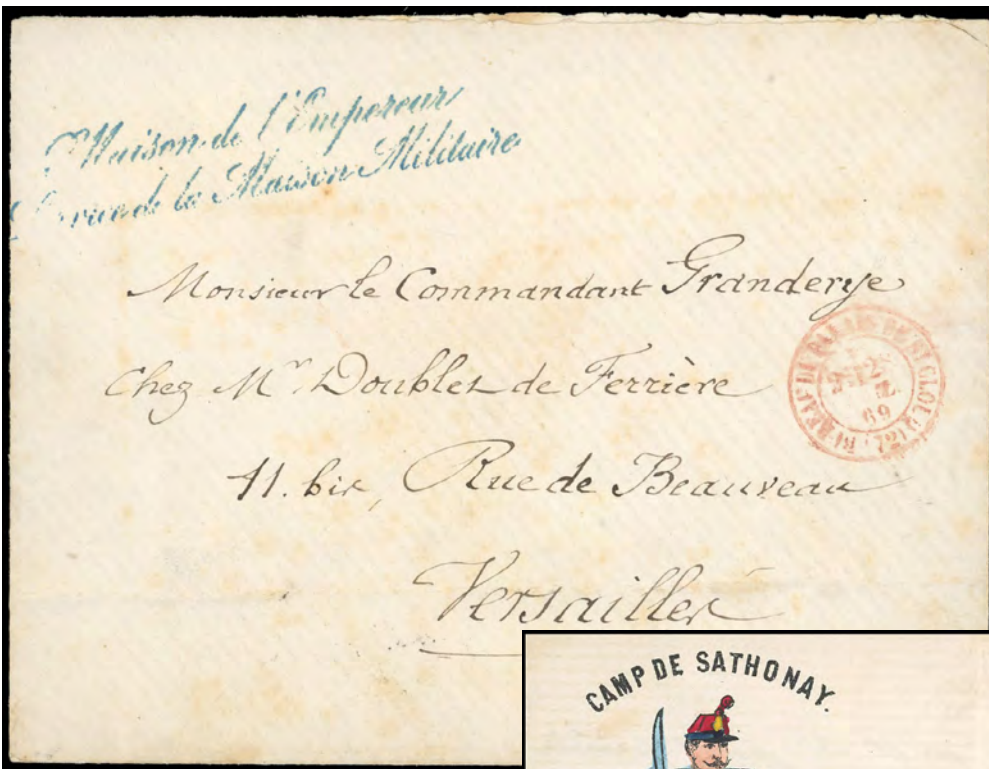 Maison de l'Empereur
Service de la Maison Militaire
Monsieur le Commandant Granderye
Chez Mr. Doublet de Ferrière
11. bis, Rue de Beauveau
Versailles
BUREAU DU PALAIS DE ST CLOUD (72)
69
CAMP DE SATHONAY.